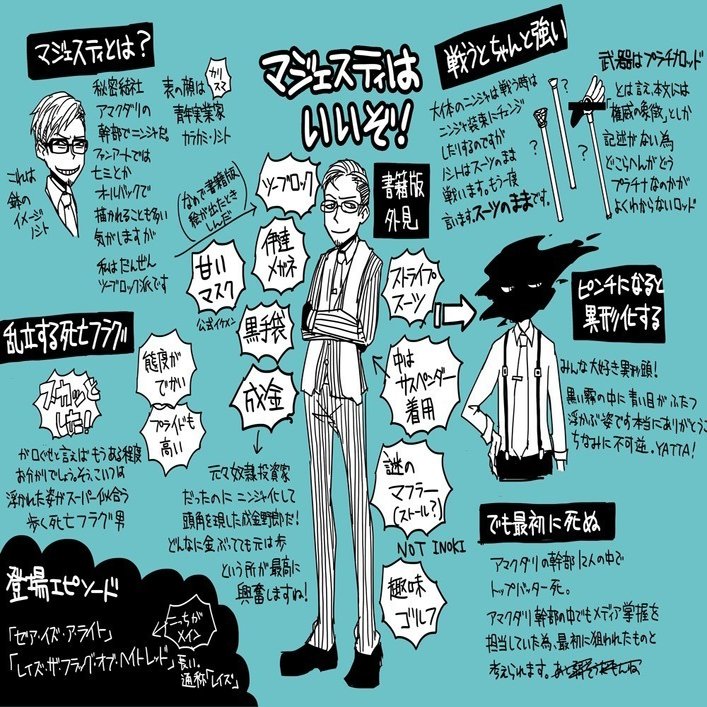 マジェスティとは?
秘密結社
アマクダリの
幹部でニンジャだ。
ファンアートでは
七三とか
オールバックで
描かれることも多い
気がしますが
私はだんぜん
ツーブロック派です
これは
鉄の
イメージ
ノント
表の顔は
カリスマ
青年実業家
カラカミ・ノント
マジェスティは
いいぞ!
(なお書籍版
絵が出たとき
しんだ)
ツーブロック
伊達
メガネ
甘い
マスク
公式イケメン
黒手袋
成金
元マネ奴隷投資家
だったのにニンジャ化して
頭角を現した成金野郎だ!
どんなに金ぶってても元は歩
という所が最高に
興奮しますね!
書籍版
外見
ストライプ
スーツ
中は
サスペンダー
着用
謎の
マフラー
(ストール?)
NOT INOKI
趣味
ゴルフ
戦うとちゃんと強い
大体のニンジャは戦う時は
ニンジャ装束にチェンジ
したりするのですが
ノントはスーツのまま
戦います。もう一度
言いますスーツのままです。
武器はプラチナロッド
とは言え、本文には
「権威の象徴」としか
記述がない為
どこらへんがどう
プラチナなのかが
よくわからないロッド
?
?
?
?
ピンチになると
異形化する
みんな大好き異形頭!
黒い霧の中に青い目がふたつ
浮かぶ姿です本当にありがとうご
ちなみに不可逆。YATTA!
乱立する死亡フラグ
スカッと
した!
態度が
でかい
プライドも
高い
が口ぐせと言えばもうある程度
お分かりでしょうそう、こいつは
浮かれた姿がスーパー似合う
歩く死亡フラグ男
でも最初に死ぬ
アマクダリの幹部12人の中で
トップバッター死。
アマクダリ幹部の中でもメディア掌握を
担当していた為、最初に狙われたものと
考えられます。
登場エピソード
「ゼア・イズ・ア・ライト」
「レイズ・ザ・フラッグ・オブ・ヘイトレッド」
こっちが
メイン
長い。
通称「レイズ」